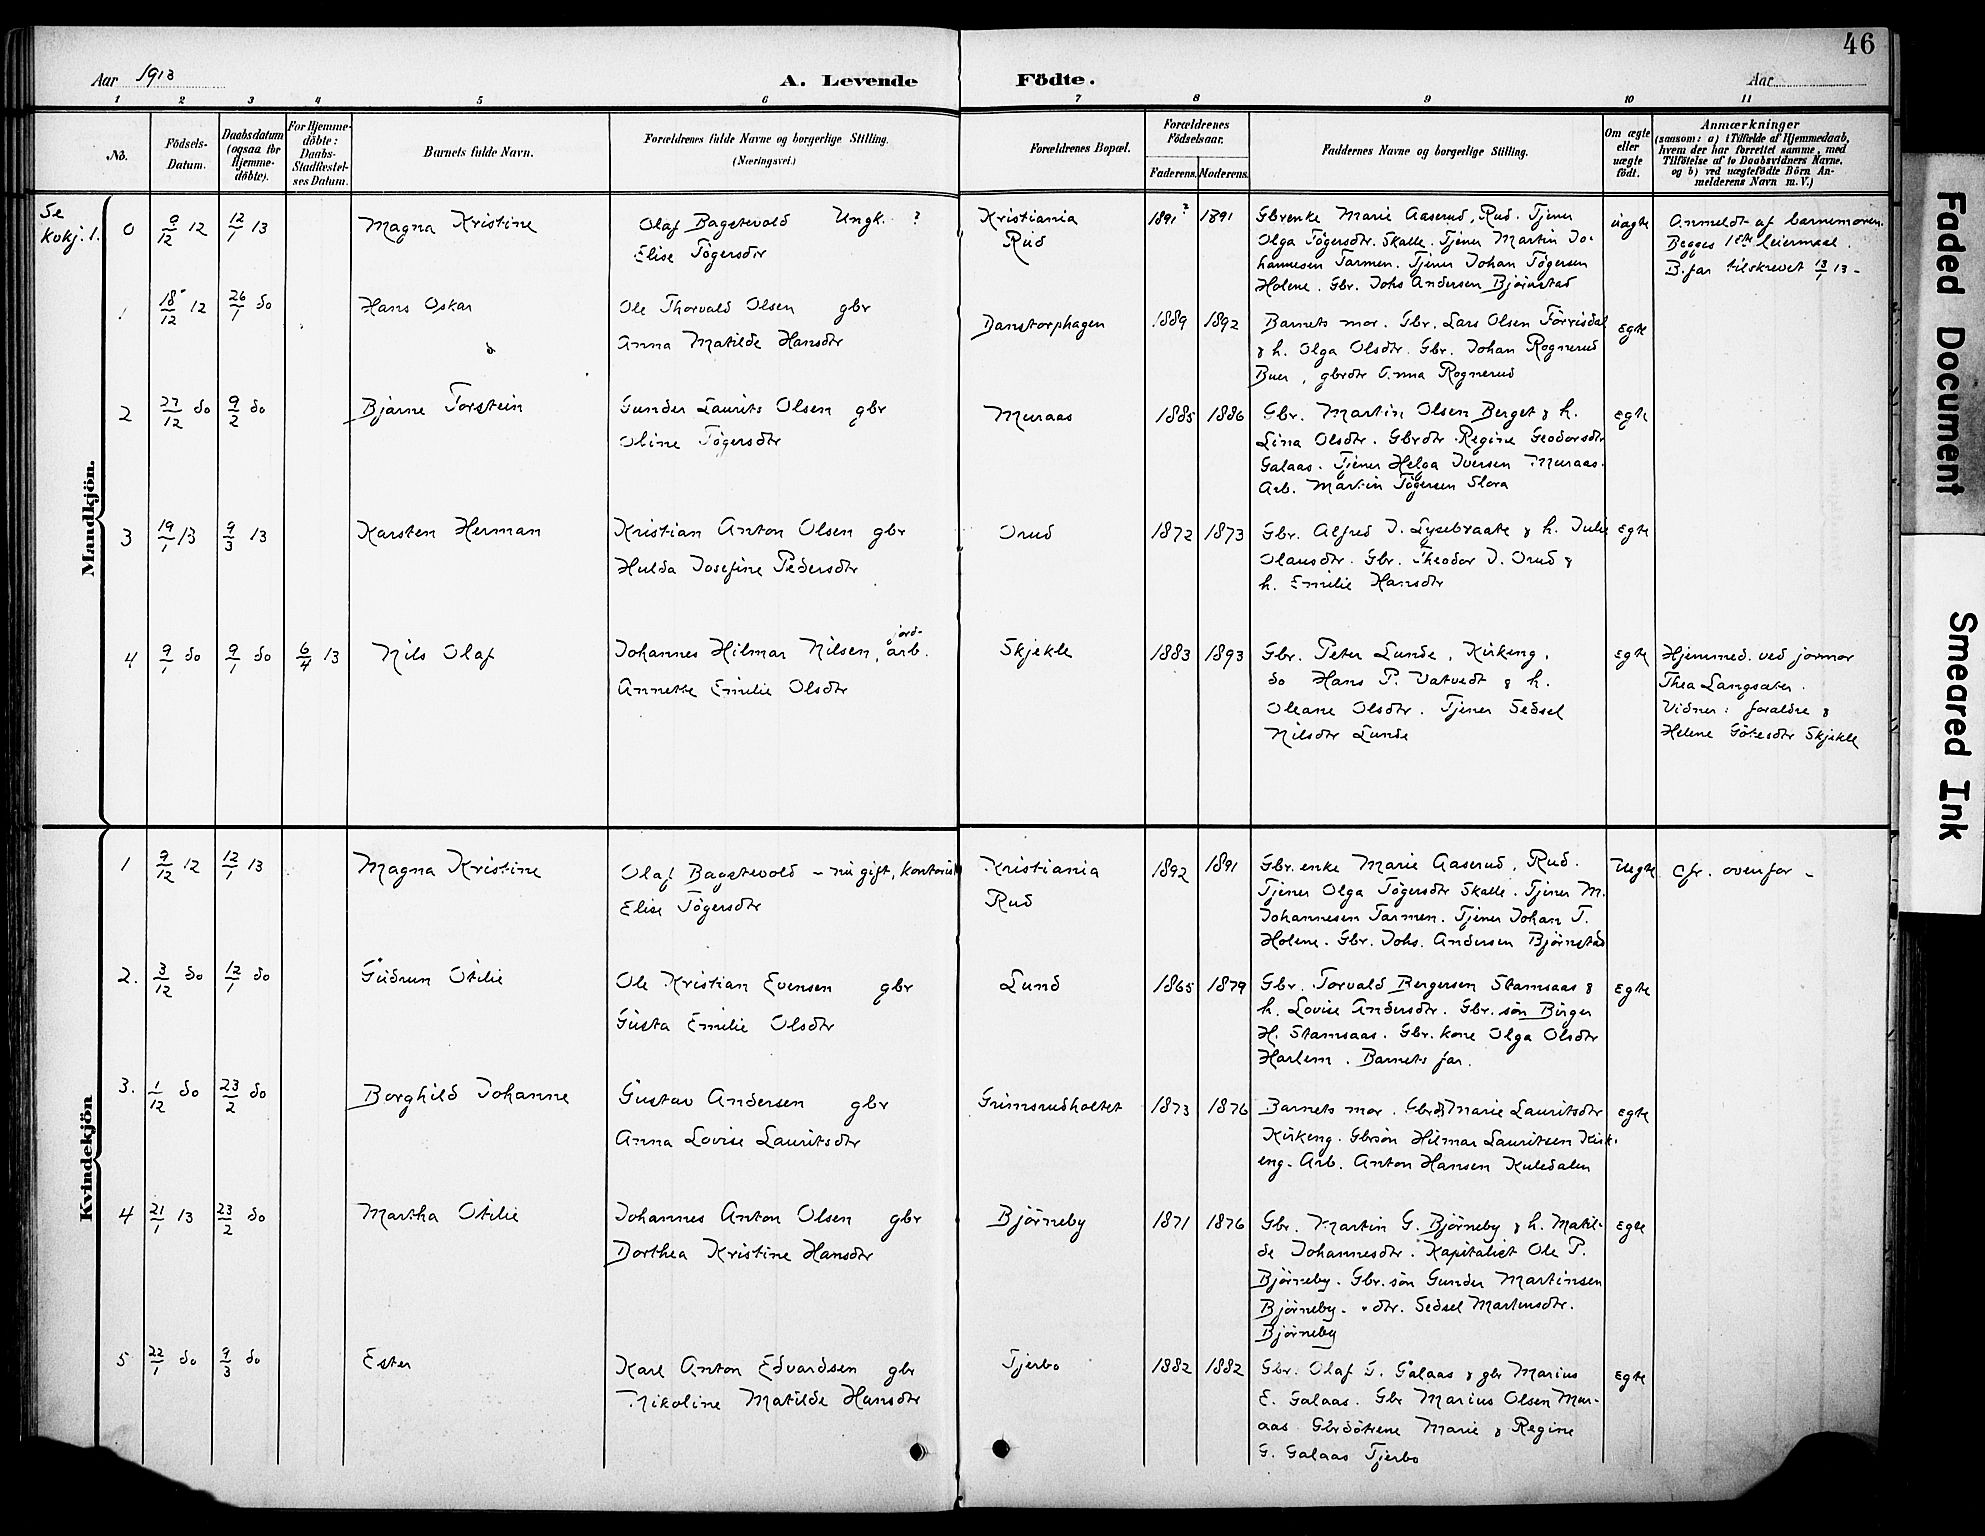 46
Aar 1913
A. Levende Födte.
Aar
1 2 3 4 5 6 7 8 9 10 11
No.
Födsels-Datum.
Daabsdatum (ogsaa för Hjemme-döbte).
For Hjemme-döbte: Daabs-Stadfæstel-ses Datum.
Barnets fulde Navn.
Forældrenes fulde Navne og borgerlige Stilling. (Næringsvei.)
Forældrenes Bopæl.
Forældrenes Födselsaar.
Faderens. Moderens.
Faddernes Navne og borgerlige Stilling.
Om ægte eller uægte födt.
Anmærkninger (saasom: a) i Tilfælde af Hjemmedaab, hvem der har forrettet samme, med Tilföielse af to Daabsvidners Navne, og b) ved uægtefödte Börn An-melderens Navn m. V.)
Mandkjön.
Se kvkj. 1.
0 9/12 12 12/1 13 Magna Kristine
Olaf Bagstevold Ungk. ?
Elise Tögersdtr
Kristiania
Rud
1891? 1891
Gbrenke Marie Aaserud, Rud. Tjener
Olga Tögersdtr. Skalle. Tjener Martin Jo-
hannesen Tarmen. Tjener Johan Tögersen
Holene. Gbr. Johs Andersen Björnstad
uægte
Anmeldt af barnemoren.
Begges 1ste leiermaal.
B.far tilskrevet 13/1 13 -
1 18/12 12 26/1 do Hans Oskar
Ole Thorvald Olsen gbr
Anna Matilde Hansdtr
Danstorphagen
1889 1892
Barnets mor. Gbr. Lars Olsen Törrisdal
& h. Olga Olsdtr. Gbr. Johan Rognerud
Buer, gbrdtr Anna Rognerud
egte
2 27/12 do 9/2 do Bjarne Torstein
Gunder Laurits Olsen gbr
Oline Tögersdtr
Muraas
1885 1886
Gbr. Martin Olsen Berget & h.
Lina Olsdtr. Gbrdtr Regine Geodorsdtr
Galaas. Tjener Helga Iversen Muraas.
Arb. Martin Tögersen Slora
egte
3 19/1 13 9/3 13 Karsten Herman
Kristian Anton Olsen gbr
Hulda Josefine Pedersdtr
Orud
1872 1873
Gbr. Alfred J. Lysebraate & h. Julie
Olausdtr. Gbr. Theodor J. Orud &
h. Emilie Hansdtr
egte
4 9/1 do 9/1 do 6/4 13 Nils Olaf
Johannes Hilmar Nilsen, jord-arb.
Annette Emilie Olsdtr
Skjekle
1883 1893
Gbr. Peter Lunde, Kirkeng,
do Hans P. Vatvedt & h.
Oleane Olsdtr. Tjener Sedsel
Nilsdtr Lunde
egte
Hjemmed. ved jormor
Thea Langsæter.
Vidner: foraldre &
Helene Götesdtr Skjekle
Kvindekjön
1 9/12 12 12/1 13 Magna Kristine
Olaf Bagstevold - nu gift, kontorist
Elise Tögersdtr
Kristiania
Rud
1892 1891
Gbr. enke Marie Aaserud, Rud.
Tjener Olga Tögersdtr Skalle. Tjener M.
Johannesen Tarmen. Tjener Johan T.
Holene. Gbr. Johs. Andersen Björnstad
Uegte
Cfr. ovenfor -
2. 3/12 do 12/1 do Gudrun Otilie
Ole Kristian Evensen gbr
Gusta Emilie Olsdtr
Lund
1865 1879
Gbr. Torvald Bergersen Stamsaas &
h. Lovise Andersdtr. Gbr. sön Birger
H. Stamsaas. Gbr. kone Olga Olsdtr
Harlem. Barnets far.
Egte
3. 1/12 do 23/2 do Borghild Johanne
Gustav Andersen gbr
Anna Lovise Lauritsdtr
Grimsrudholtet
1873 1876
Barnets mor. Gbrdtr Marie Lauritsdtr
Kirkeng. Gbrsön Hilmar Lauritsen Kirk-
eng. Arb. Anton Hansen Kuledalen
egte
4 21/1 13 23/2 do Martha Otilie
Johannes Anton Olsen gbr
Dorthea Kristine Hansdtr
Björneby
1871 1876
Gbr. Martin G. Björneby & h. Matil-
de Johannesdtr. Kapitalist Ole P.
Björneby. Gbr. sön Gunder Martinsen
Björneby. " dtr. Sedsel Martinsdtr.
Björneby
Egte
5 22/1 do 9/3 do Ester
Karl Anton Edvardsen gbr
Nikoline Matilde Hansdtr
Tjerbo
1882 1882
Gbr. Olaf G. Galaas & gbr Marius
E. Galaas. Gbr Marius Olsen Mur-
aas. Gbrdötrene Marie & Regine
G. Galaas Tjerbo
egte
Faded Document
Smeared Ink